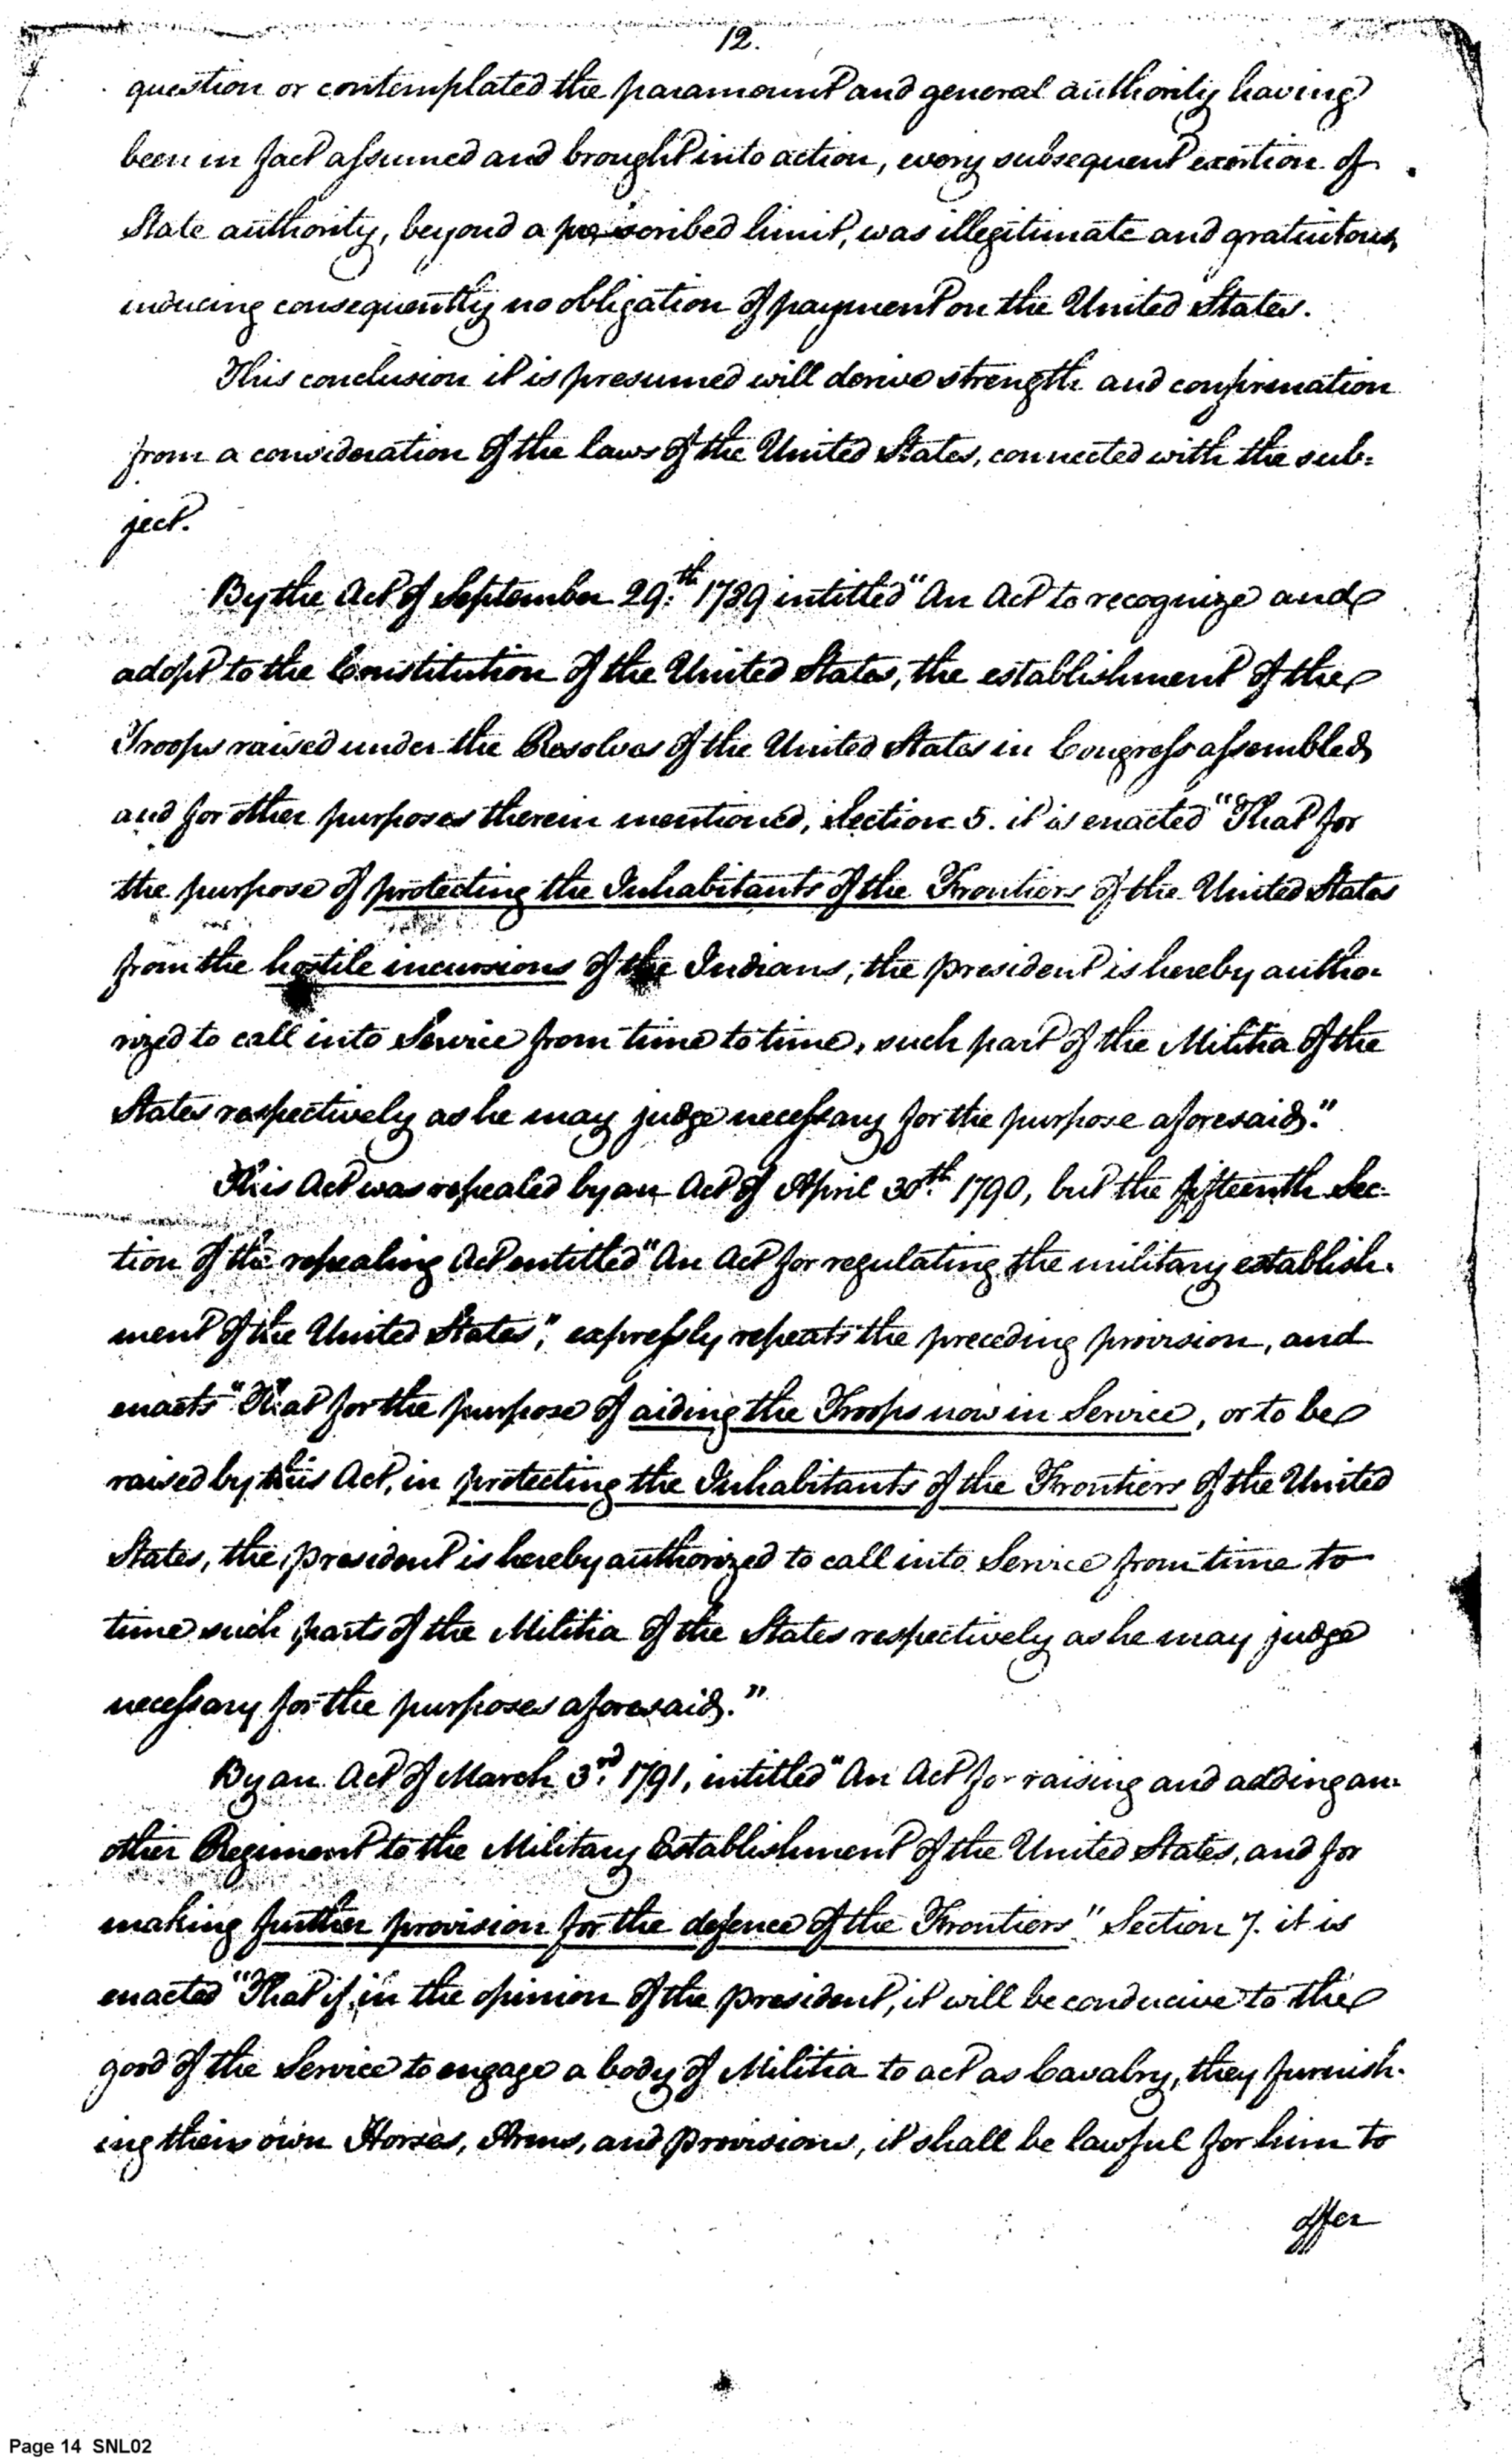 12.
question or contemplated the paramount and general authority having
been in fact assumed and brought into action, every subsequent exertion of
State authority, beyond a prescribed limit, was illegitimate and gratuitous,
inducing consequently no obligation of payment on the United States.
This conclusion it is presumed will derive strength and confirmation
from a consideration of the laws of the United States, connected with the sub=
ject.
By the Act of September 29.th 1789 intitled "An Act to recognize and
adopt to the Constitution of the United States, the establishment of the
Troops raised under the Resolves of the United States in Congress assembled,
and for other purposes therein mentioned, Section 5. it is enacted "That for
the purpose of protecting the Inhabitants of the Frontiers of the United States
from the hostile incursions of the Indians, the president is hereby autho-
rized to call into Service from time to time, such part of the Militia of the
States respectively as he may judge necessary for the purpose aforesaid."
This Act was repealed by an Act of April 30th. 1790, but the fifteenth Sec-
tion of the repealing Act entitled "An Act for regulating the military establish-
ment of the United States," expressly repeats the preceding provision, and
enacts "That for the purpose of aiding the Troops now in Service, or to be
raised by this Act, in protecting the Inhabitants of the Frontiers of the United
States, the president is hereby authorized to call into Service from time to
time such parts of the Militia of the States respectively as he may judge
necessary for the purposes aforesaid."
By an Act of March 3rd. 1791, intitled "An Act for raising and adding an-
other Regiment to the Military Establishment of the United States, and for
making further provision for the defence of the Frontiers" Section 7. it is
enacted "That if in the opinion of the president, it will be conducive to the
good of the Service to engage a body of Militia to act as Cavalry, they furnish-
ing their own Horses, Arms, and provisions, it shall be lawful for him to
offer
Page 14 SNL02